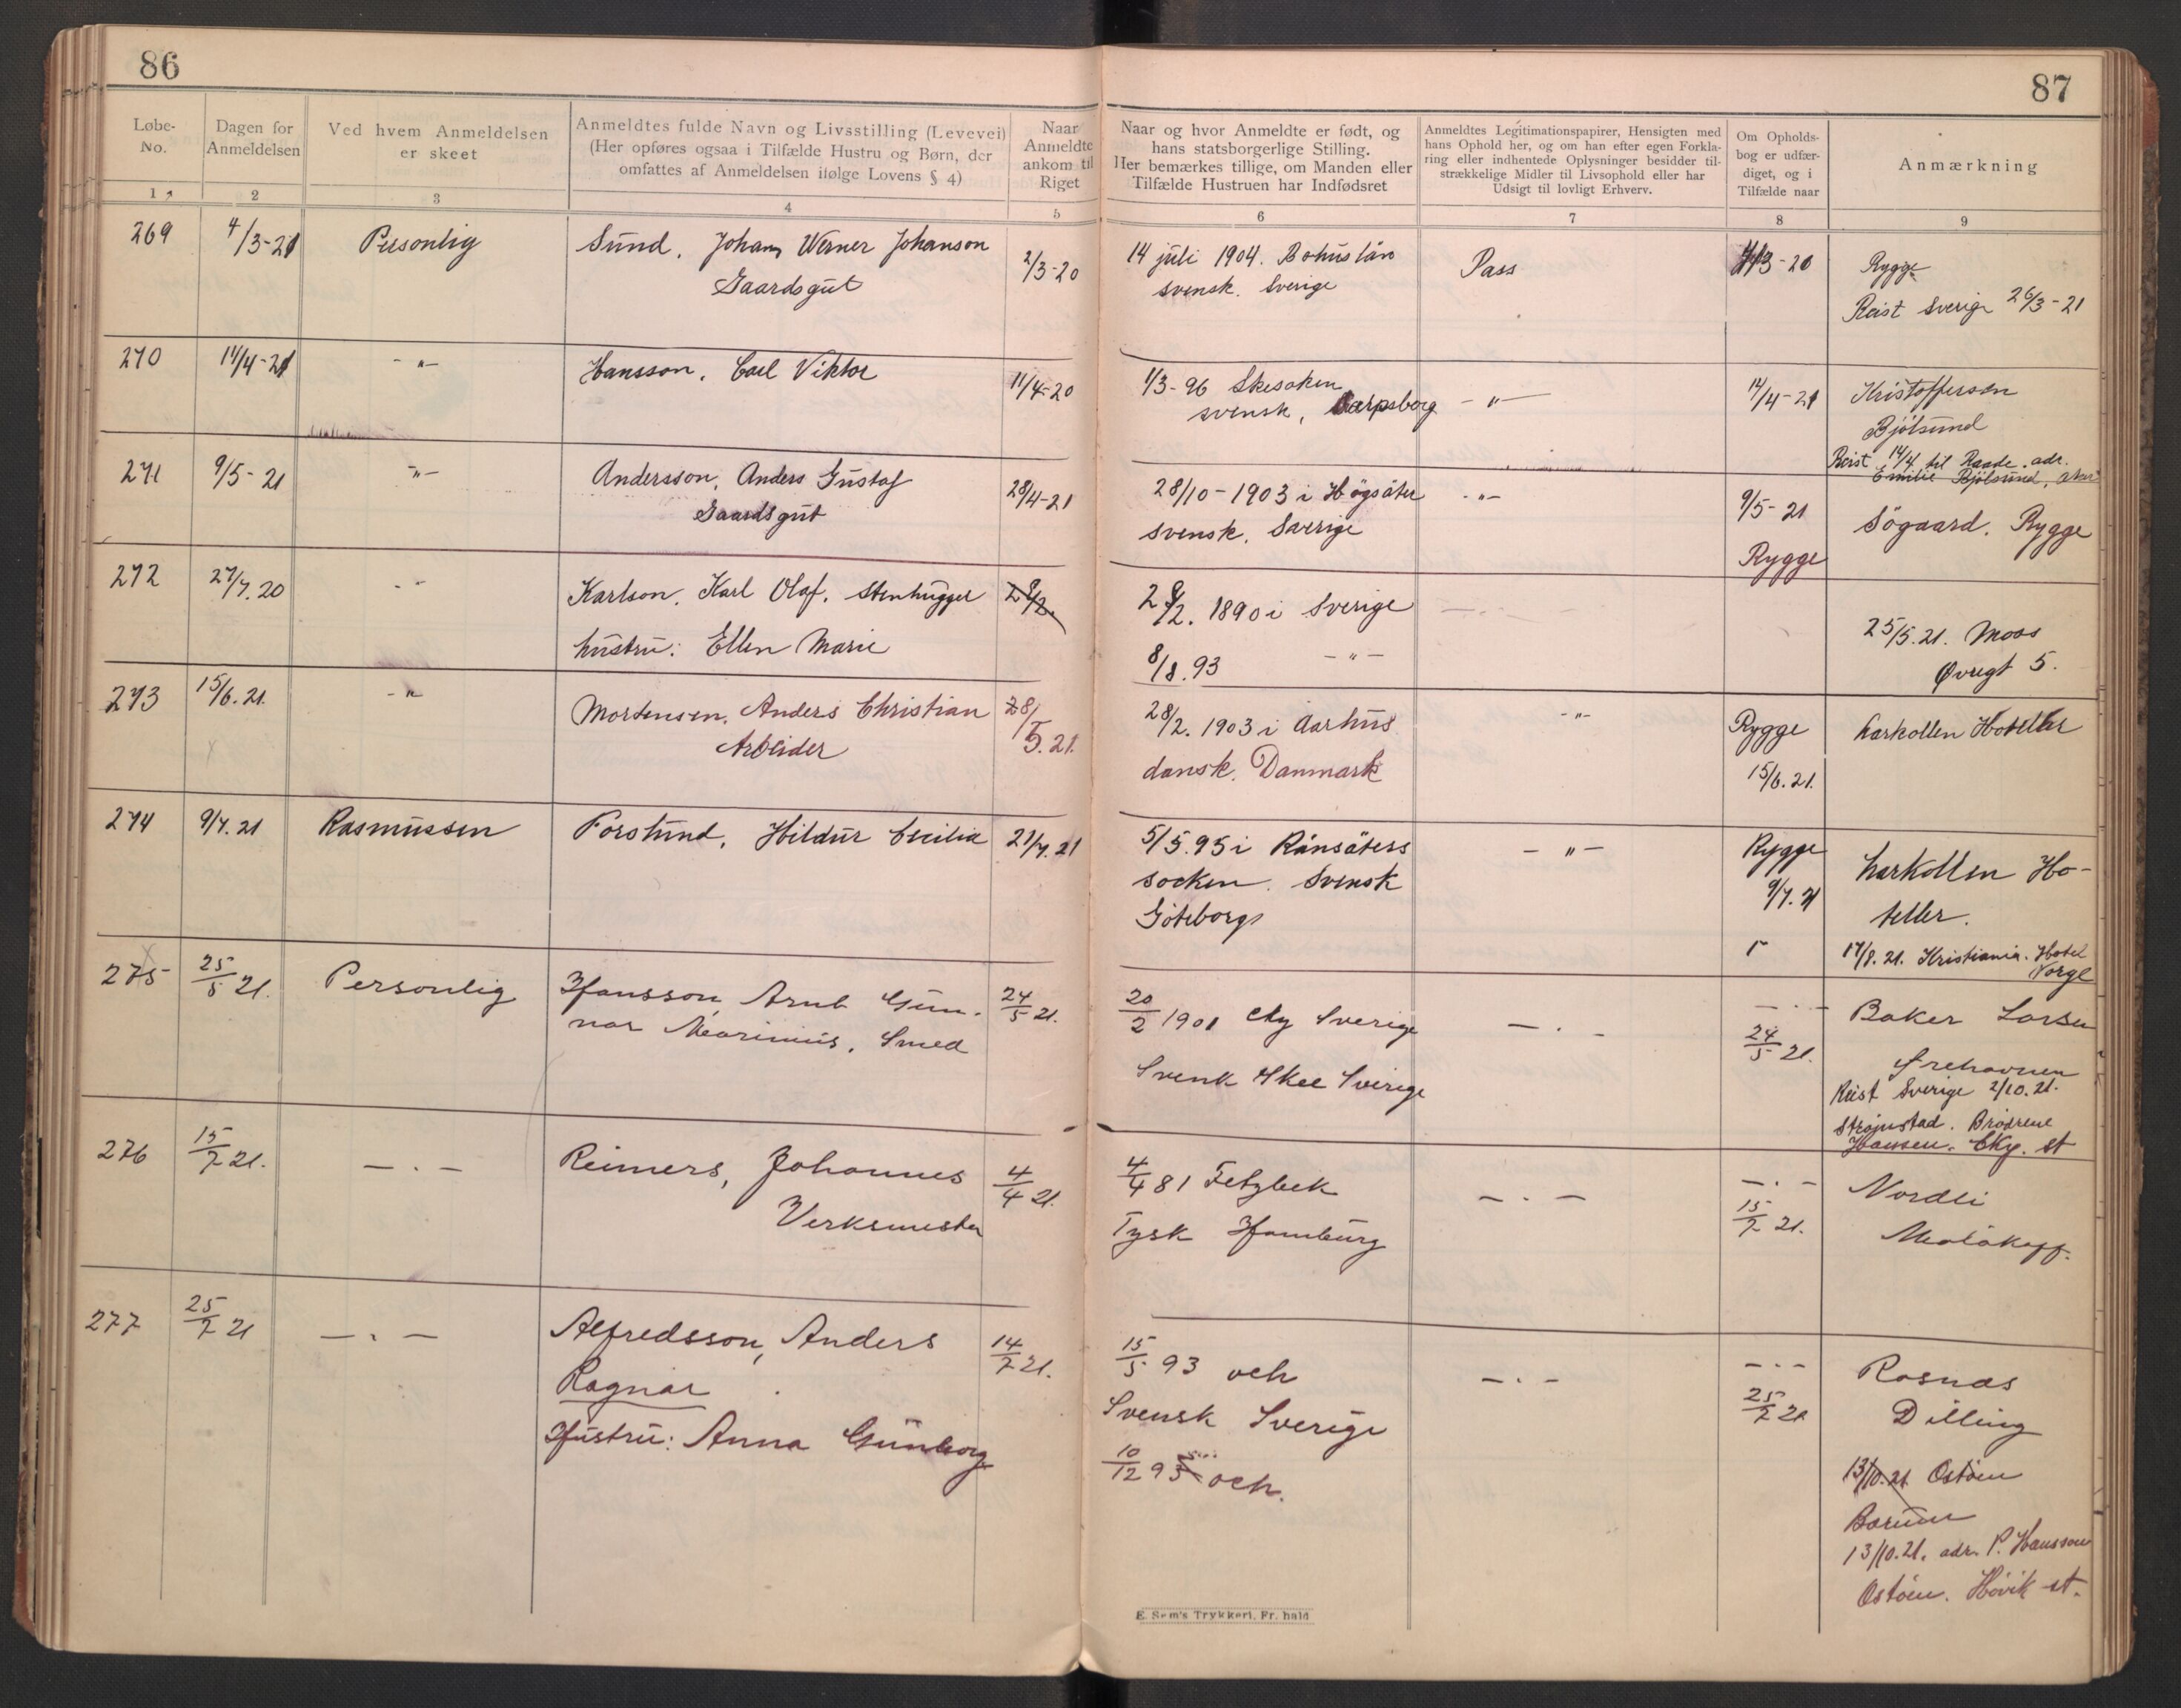 86
87
Løbe-No.
Dagen for Anmeldelsen
Ved hvem Anmeldelsen er skeet
Anmeldtes fulde Navn og Livsstilling (Levevei)
(Her opføres ogsaa i Tilfælde Hustru og Børn, der
omfattes af Anmeldelsen ifølge Lovens § 4)
Naar Anmeldte ankom til Riget
Naar og hvor Anmeldte er født, og
hans statsborgerlige Stilling.
Her bemærkes tillige, om Manden eller
Tilfælde Hustruen har Indfødsret
Anmeldtes Legitimationspapirer, Hensigten med
hans Ophold her, og om han efter egen Forkla-
ring eller indhentede Oplysninger besidder til-
strækkelige Midler til Livsophold eller har
Udsigt til lovligt Erhverv.
Om Opholds-
bog er udfær-
diget, og i
Tilfælde naar
Anmærkning
1 2 3 4 5 6 7 8 9
269 4/3-21 Personlig Sund, Johan Werner Johanson 2/3-20 14 juli 1904. Bohuslän Pass 4/3-20 Rygge
Gaardsgut svensk. Sverige Reist Sverige 26/3-21
270 11/4-21 -"- Hansson, Carl Viktor 11/4-20 1/3-96 Skesoken -"- 14/4-21 Kristoffersen
svensk, Sarpsborg Bjölsund
Reist 14/4 til Raade. adr.
Emilie Bjölsund,
271 9/5-21 -"- Andersson, Anders Gustaf 28/4-21 28/10-1903 i Högsäter -"- 9/5-21 Søgaard. Rygge
Gaardsgut svensk. Sverige Rygge
272 27/7.20 -"- Karlson, Karl Olaf, Stenhugger 28/2. 28/2. 1890 i Sverige 25/5.21. Moss
hustru: Ellen Marie 8/8.93 -"- Øvregt 5.
273 15/6.21. -"- Mortensen, Anders Christian 28/5.21. 28/2. 1903 i Aarhus -"- Rygge Larkollen Hoteller
Arbeider dansk. Danmark 15/6.21.
274 9/7.21 Rasmussen Forslund, Hildur Cecilia 21/7.21 5/5.95 i Ransäters -"- Rygge Larkollen Ho-
socken. Svensk 9/7.21 teller.
Göteborgs
17/8.21. Kristiania. Hotel
Norge
275 25/5 21. Personlig Hansson, Arnt Gun- 24/5 21. 20/2 1901 Sverige - . - - . - Baker Larsen
nar Marinius, Smed Svensk Skee Sverige 24/5 21.
Reist Sverige 2/10.21.
Strømstad. Brødrene
Hansen.
276 15/7 21. - . - Reimers, Johannes 4/4 21. 4/4 81 Fetzbek - . - - . - Nordli
Verksmester Tysk Hamburg 15/7 21. Malakoff.
277 25/7 21 - . - Alfredsson, Anders 14/7 21. 15/5 93 och - . - - . - Rosnæs
Ragnar Svensk Sverige 25/7 21 Dilling
Hustru: Anna Gunborg 10/12 93 och.
13/10.21 Ostøen
Bærum
13/10.21. adr. P. Hansson
Ostøen. Høvik st.
E. Sem's Trykkeri, Fr. hald